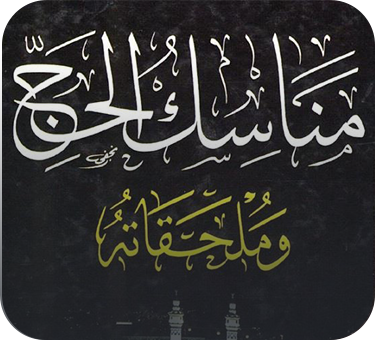 مَنَاسِكُ الحَجِّ
وَمُلحَقَاتُهُ